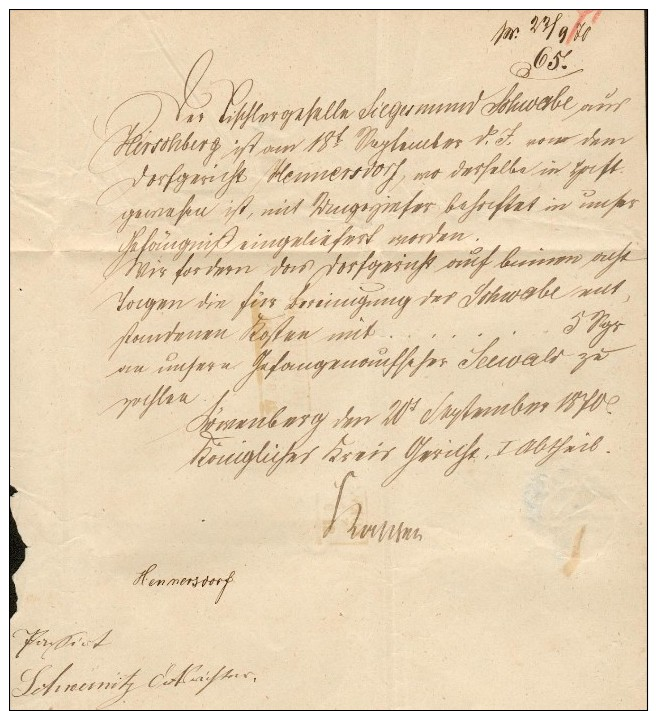 pr. 23/9 70
65.
Der Tischlergeselle Siegesmund Schwabe aus
Hirschberg ist am 18t September d. J. von dem
Dorfgericht Hennersdorf, wo derselbe in Haft
gewesen ist, mit Ungeziefer behaftet in unser
Gefängniß eingeliefert worden.
Wir fordern das Dorfgericht auf binnen acht
Tagen die für Reinigung des Schwabe ent-
standenen Kosten mit . . . . . . 5 Sgr
an unsern Gefangenaufseher Seewald zu
zahlen.
Löwenberg den 20t September 1870
Königliches Kreis Gericht. I Abtheil.
Hennersdorf